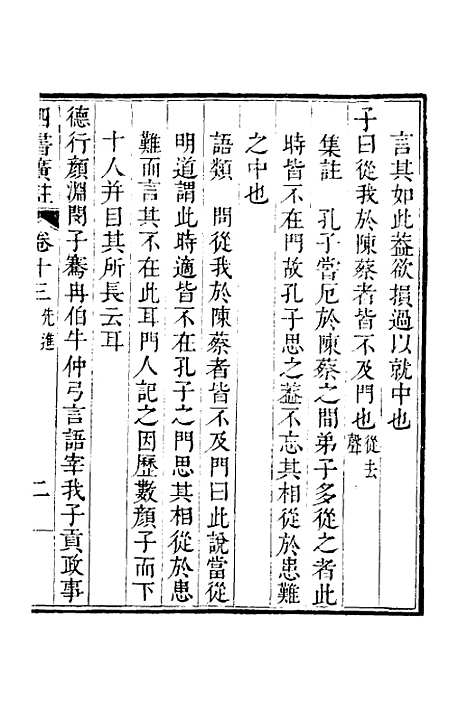 言其如此葢欲損過以就中也
子曰從我於陳蔡者皆不及門也從去聲
集註　孔子嘗厄於陳蔡之間弟子多從之者此
時皆不在門故孔子思之葢不忘其相從於患難
之中也
語類　問從我於陳蔡者皆不及門曰此說當從
明道謂此時適皆不在孔子之門思其相從於患
難而言其不在此耳門人記之因歷數顏子而下
十人并目其所長云耳
德行顏淵閔子騫冉伯牛仲弓言語宰我子貢政事
四書廣註　卷十三先進　二